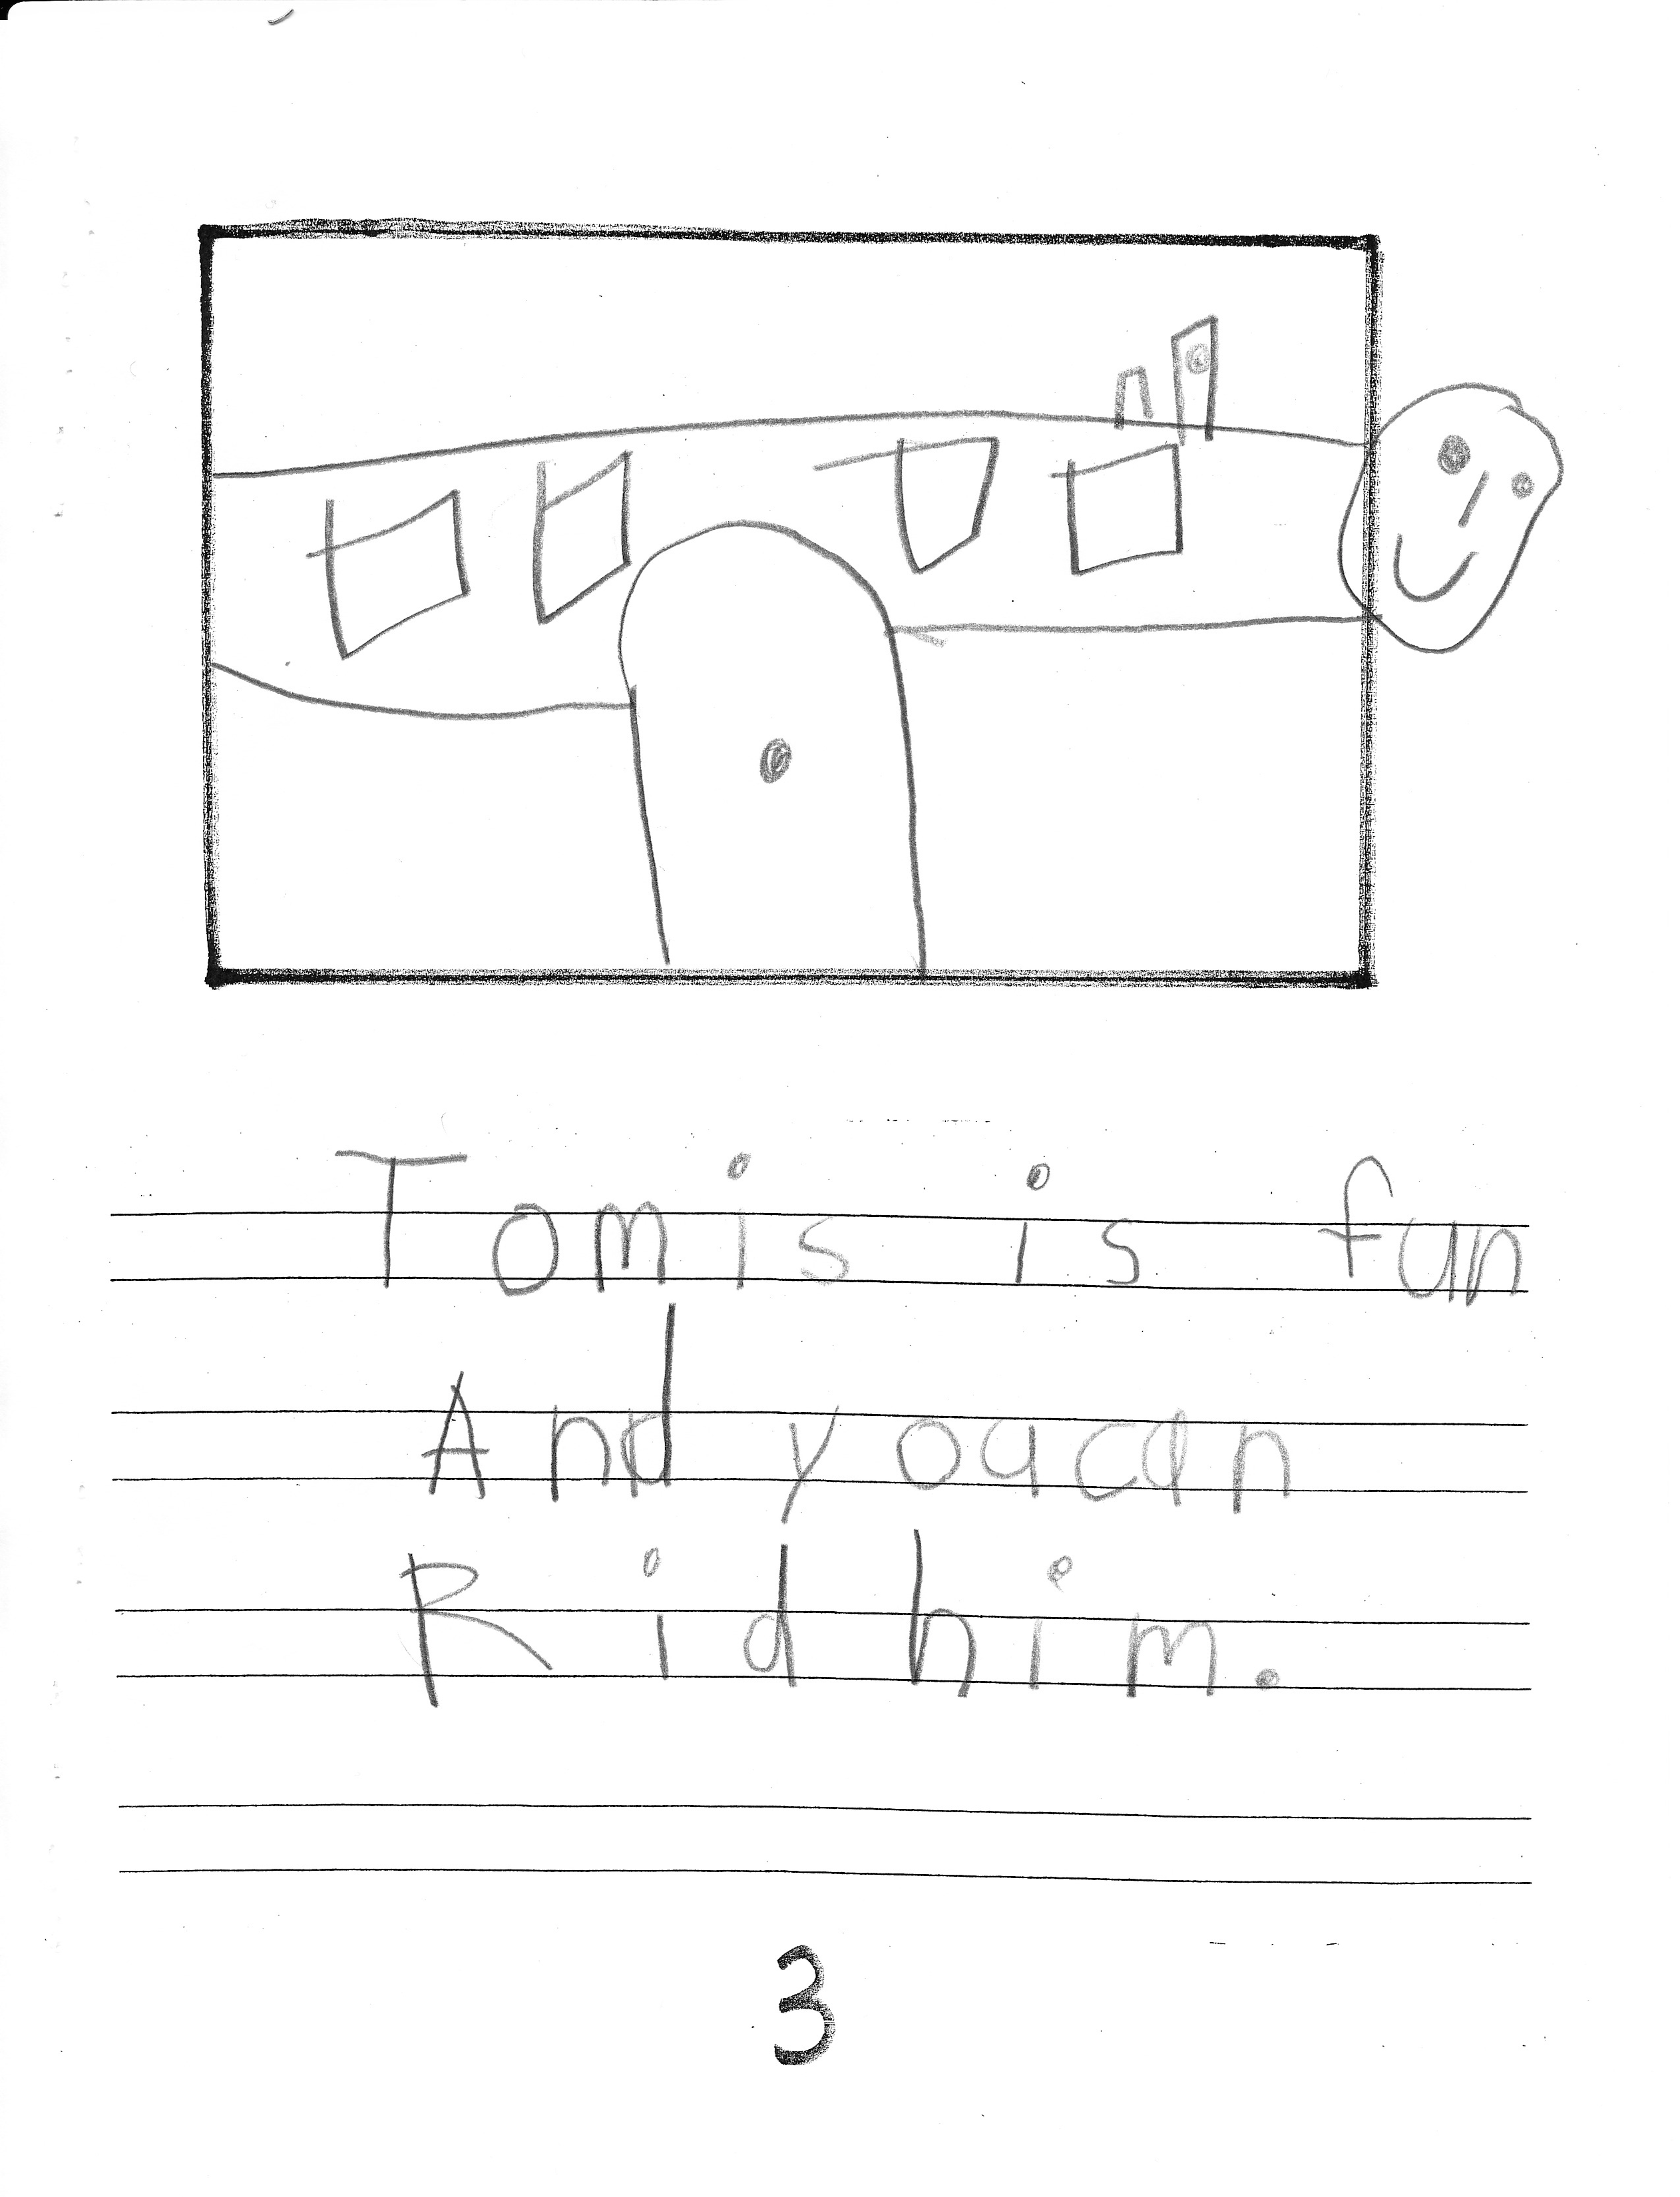 Tomis is fun
And you can
Rid him.
3